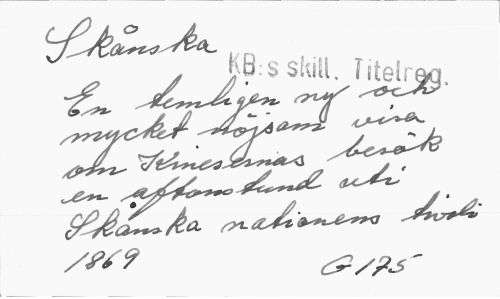 Skånska
KB:s skill. Titelreg.
En temligen ny och
mycket nöjsam visa
om Kinesernas besök
en aftonstund uti
Skånska nationens tivoli
1869 G 175